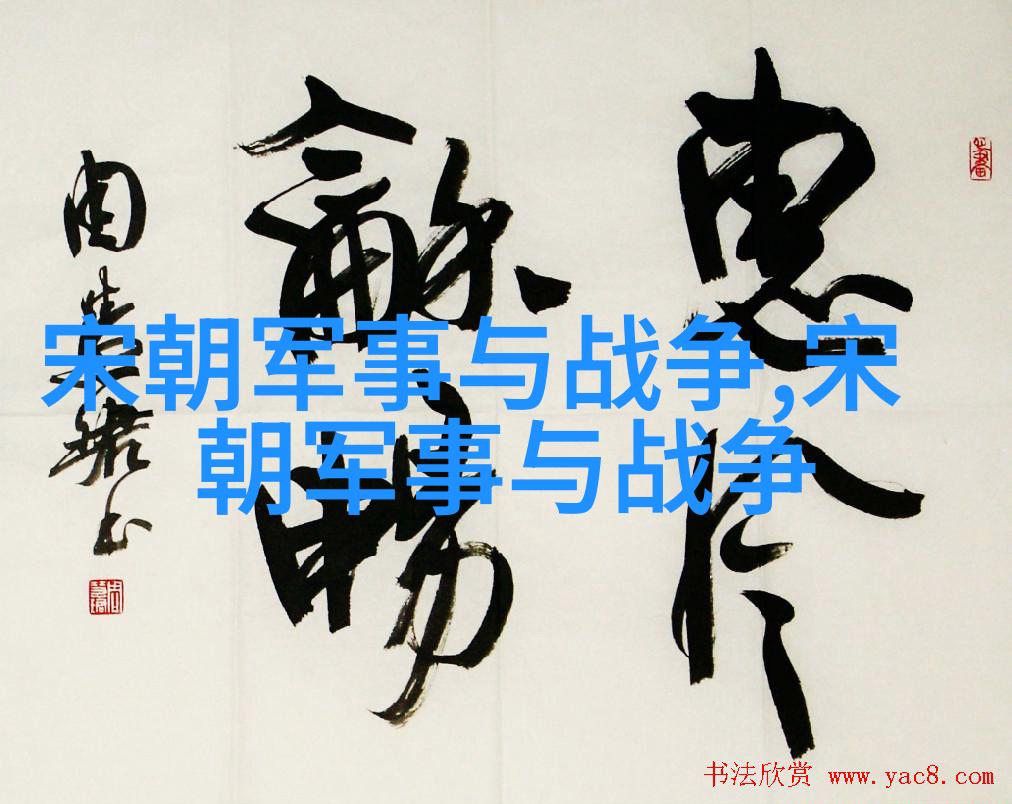 惠
龢暢
宋朝军事与战争,宋
朝军事与战争
书法欣赏 www.yac8.com